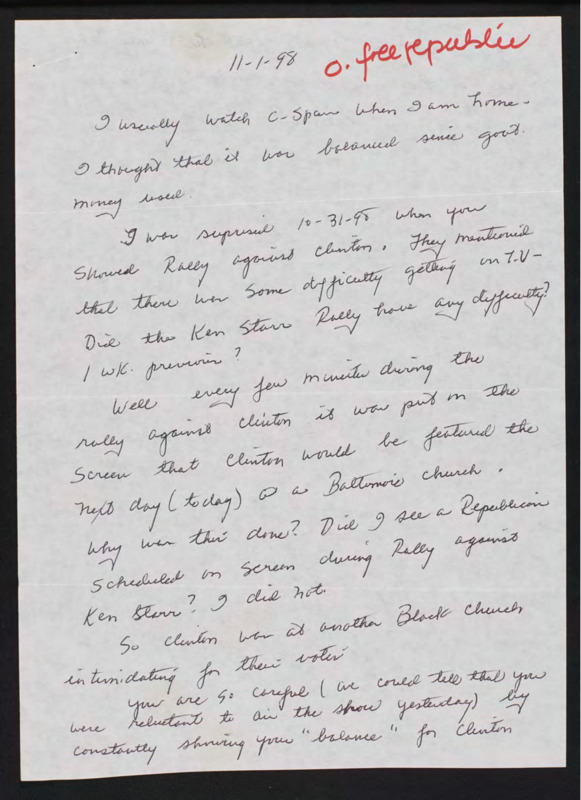 11-1-98
o. freerepublic
I usually watch C-Span when I am home.
I thought that it was balanced since govt.
money used.
I was suprised 10-31-98 when you
showed Rally against Clinton. They mentioned
that there was some difficulty getting on T.V-
Did the Ken Starr Rally have any difficulty?
1 wk. previous?
Well every few minutes during the
rally against Clinton it was put on the
screen that Clinton would be featured the
next day (today) @ a Baltimore church.
Why was this done? Did I see a Republican
scheduled on screen during Rally against
Ken Starr? I did not.
So Clinton was at another Black Church
intimidating for their votes
you are so careful (we could tell that you
were reluctant to air the show yesterday) by
constantly showing your "balance" for Clinton